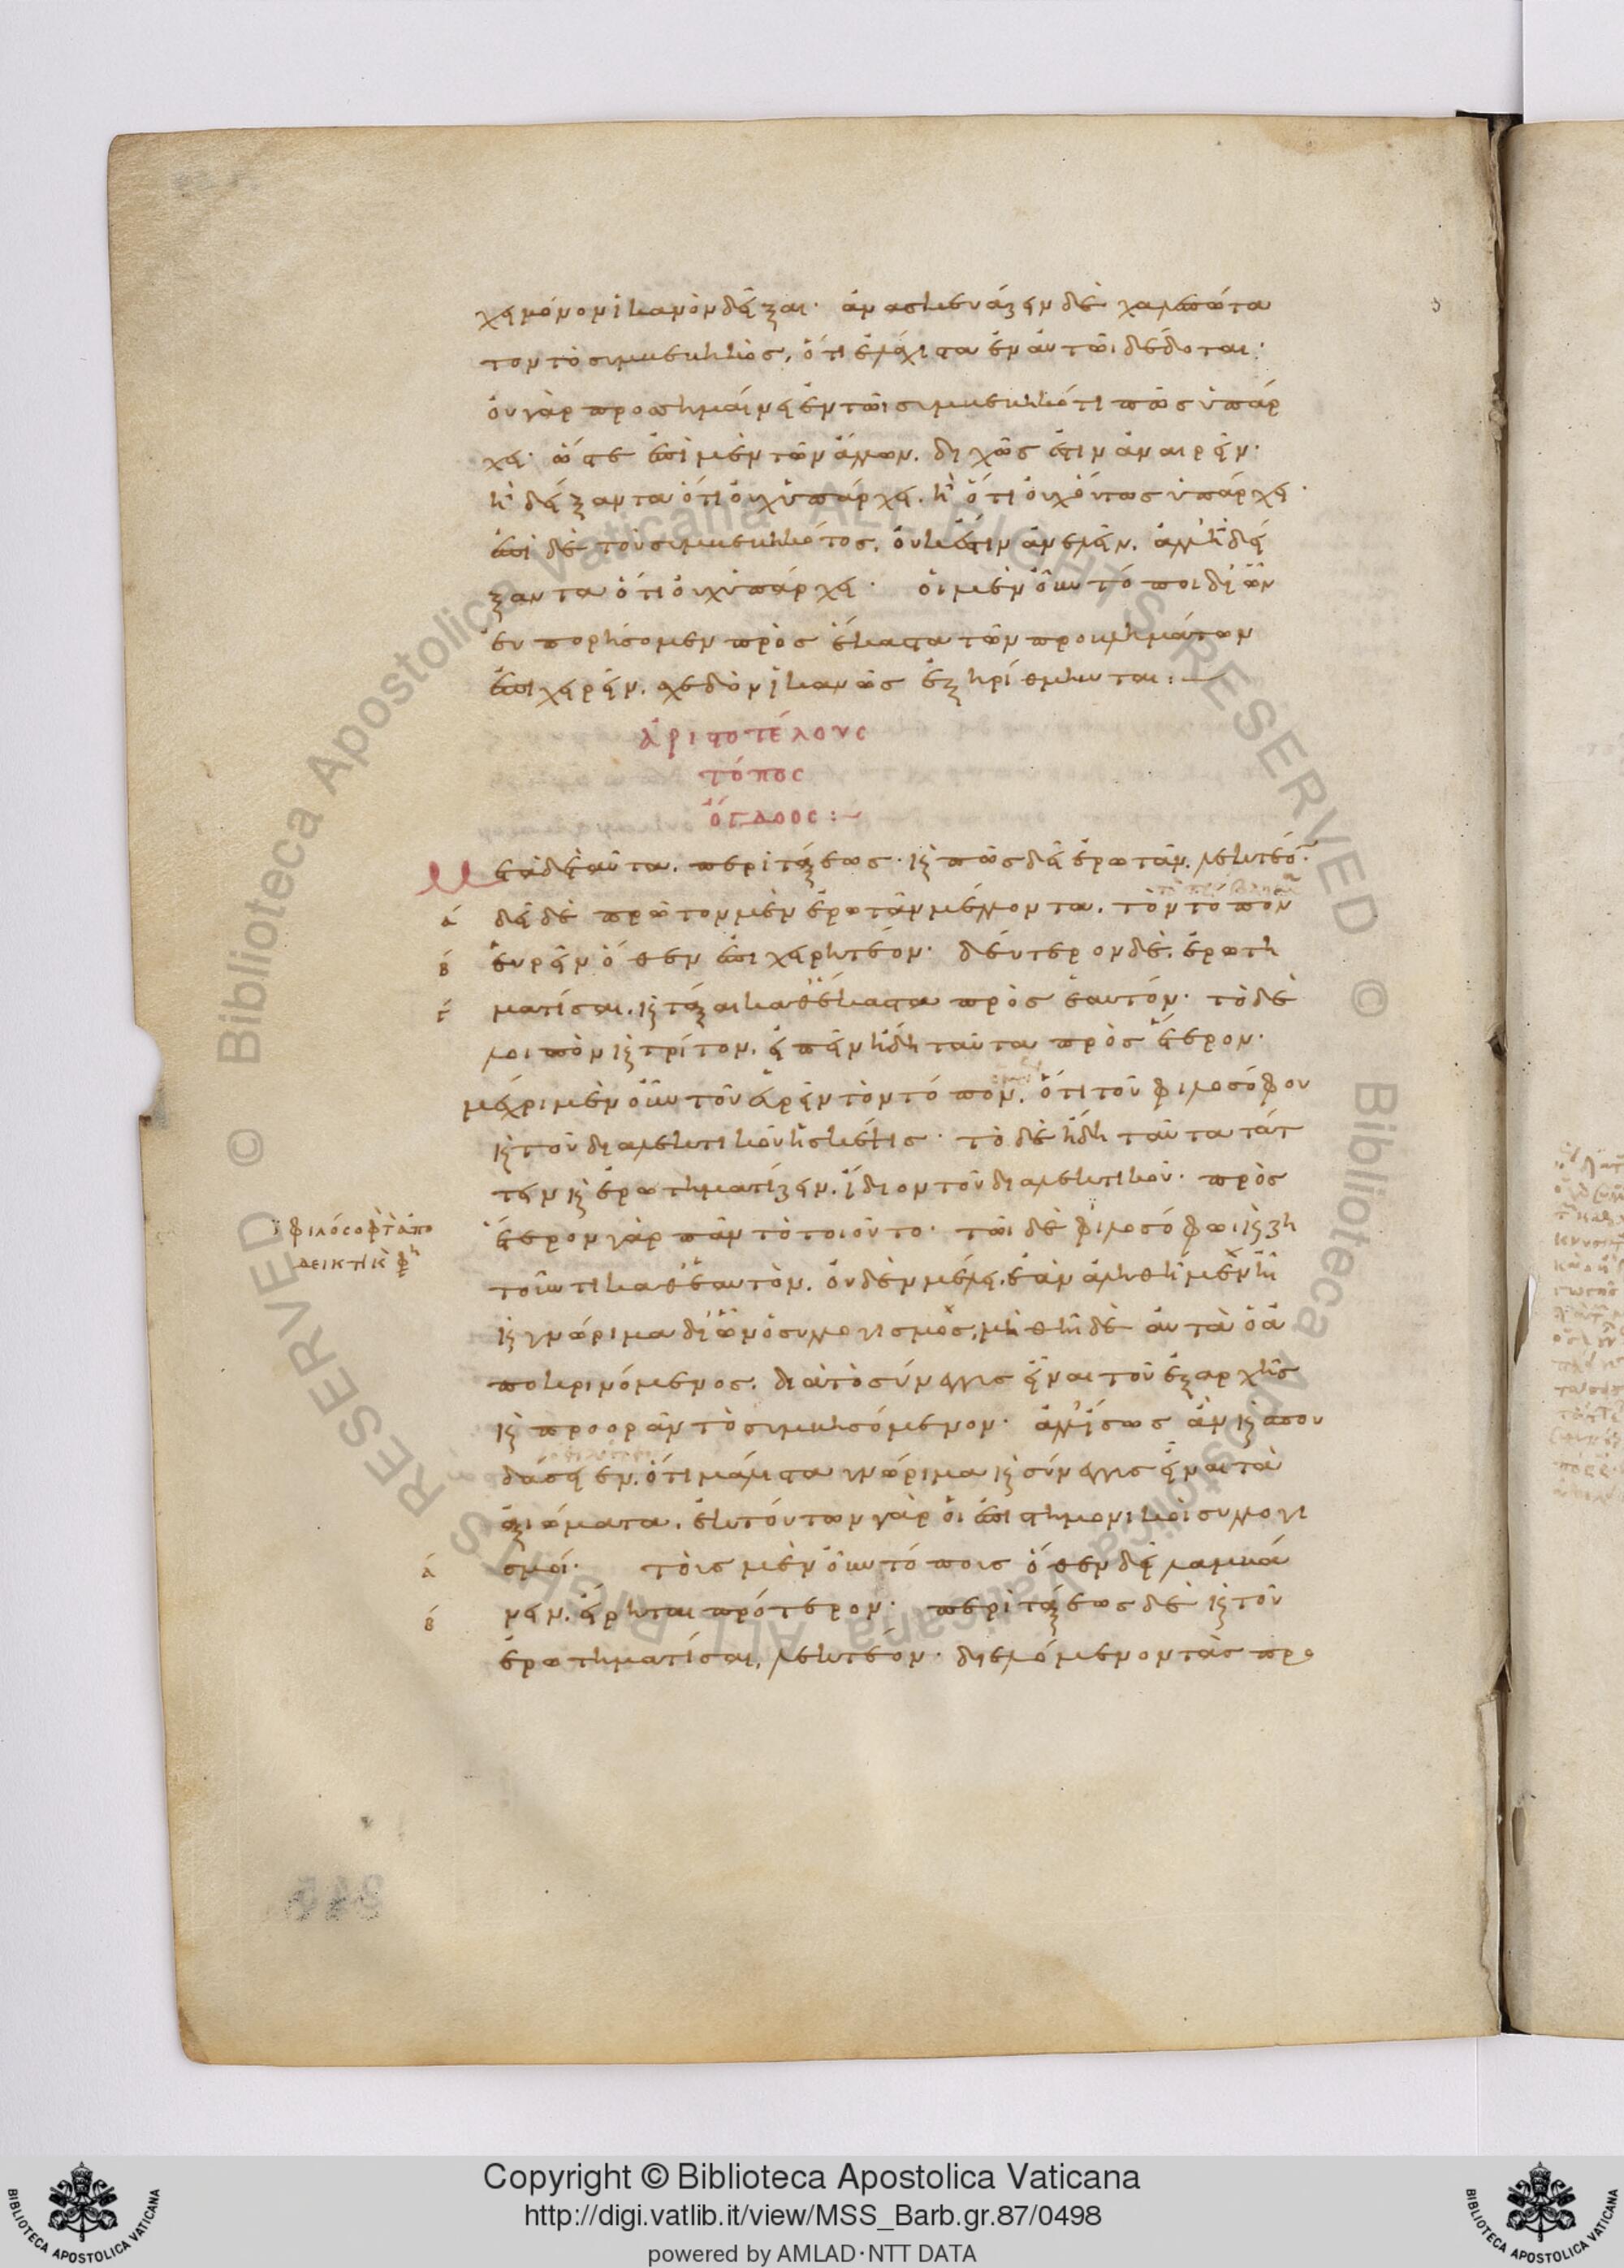 χει μόνον ἱκανὸν δεῖξαι· ἀνασκευάζειν δὲ χαλεπώτα
τον τὸ συμβεβηκὸς, ὅτι ἐλάχιστα ἐν αὐτῶι δέδοται·
οὐ γὰρ προσσημαίνει ἐν τῶι συμβεβηκότι πῶς ὑπάρ
χει· ὥστε ἐπὶ μὲν τῶν ἄλλων, διχῶς ἔστιν ἀναιρεῖν·
ἢ δείξαντα ὅτι οὐχ ὑπάρχει, ἢ ὅτι οὐχ οὕτως ὑπάρχει·
ἐπὶ δὲ τοῦ συμβεβηκότος, οὐκ ἔστιν ἀνελεῖν, ἀλλ' ἢ δεί
ξαντα ὅτι οὐχ ὑπάρχει· οἱ μὲν οὖν τόποι δι' ὧν
εὐπορήσομεν πρὸς ἕκαστα τῶν προβλημάτων
ἐπιχειρεῖν, σχεδὸν ἱκανῶς ἐξηρίθμηνται:
ἀριστοτέλους
τόπος
ὄγδοος:
Μετὰ δὲ ταῦτα, περὶ τάξεως· καὶ πῶς δεῖ ἐρωτᾶν, λεκτέον·
α δεῖ δὲ πρῶτον μὲν ἐρωτᾶν μέλλοντα, τὸν τόπον
β εὑρεῖν ὅθεν ἐπιχειρητέον· δεύτερον δὲ, ἐρωτη
γ ματίσαι, καὶ τάξαι καθ' ἕκαστα πρὸς ἑαυτόν· τὸ δὲ
λοιπὸν καὶ τρίτον, εἰπεῖν ἤδη ταῦτα πρὸς ἕτερον·
μέχρι μὲν οὖν τοῦ εὑρεῖν τὸν τόπον, ὅτι τοῦ φιλοσόφου
καὶ τοῦ διαλεκτικοῦ ἡ σκέψις· τὸ δὲ ἤδη ταῦτα τάτ
τειν καὶ ἐρωτηματίζειν, ἴδιον τοῦ διαλεκτικοῦ· πρὸς
ἕτερον γὰρ πᾶν τὸ τοιοῦτο· τῶι δὲ φιλοσόφωι καὶ ζη
τοῦντι καθ' ἑαυτὸν, οὐδὲν μέλει, ἐὰν ἀληθῆ μὲν ἦ
καὶ γνώριμα δι' ὧν ὁ συλλογισμός, μὴ θῆ δὲ αὐτὰ ὁ ἀ
ποκρινόμενος, διὰ τὸ σύνεγγυς εἶναι τοῦ ἐξ ἀρχῆς
καὶ προορᾶν τὸ συμβησόμενον· ἀλλ' ἴσως ἂν καὶ σπου
δάσειεν, ὅτι μάλιστα γνώριμα καὶ σύνεγγυς εἶναι τὰ
ἀξιώματα, ἐκ τούτων γὰρ οἱ ἐπιστημονικοὶ συλλογι
α σμοί· τοὺς μὲν οὖν τόπους ὅθεν δεῖ λαμβά
β νειν, εἴρηται πρότερον· περὶ τάξεως δὲ καὶ τοῦ
ἐρωτηματίσαι, λεκτέον· διελόμενον τὰς προ
Copyright © Biblioteca Apostolica Vaticana
http://digi.vatlib.it/view/MSS_Barb.gr.87/0498
powered by AMLAD·NTT DATA